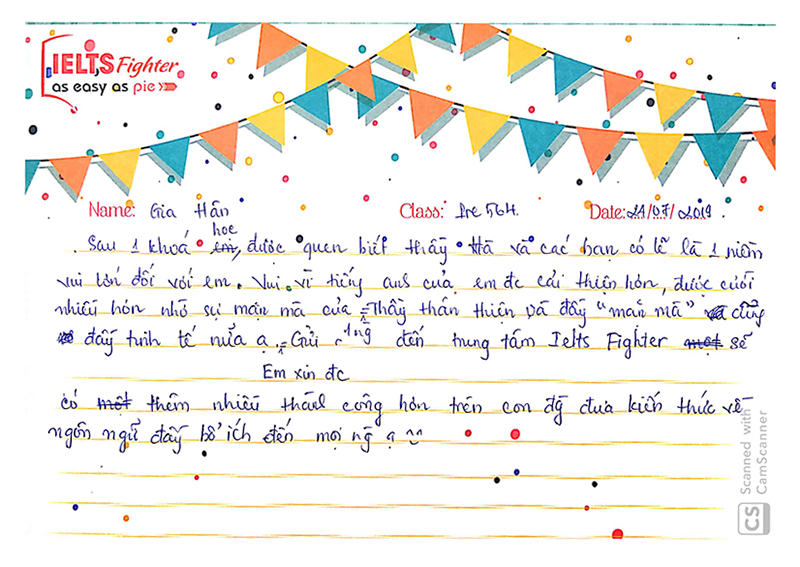 IELTS Fighter
as easy as pie
Name: Gia Hân Class: Pre 56H. Date: 21/07/2019
Sau 1 khoá học, được quen biết thầy Hà và các bạn có lẽ là 1 niềm
vui lớn đối với em. Vui vì tiếng anh của em đc cải thiện hơn, được cười
nhiều hơn nhờ sự mặn mà của Thầy thân thiện và đầy "mặn mà" cũng
đầy tinh tế nữa ạ. Gửi đến trung tâm Ielts Fighter sẽ
Em xin đc
có thêm nhiều thành công hơn trên con đg đưa kiến thức về
ngôn ngữ đầy bổ ích đến mọi ng ạ ^^
CS Scanned with
CamScanner